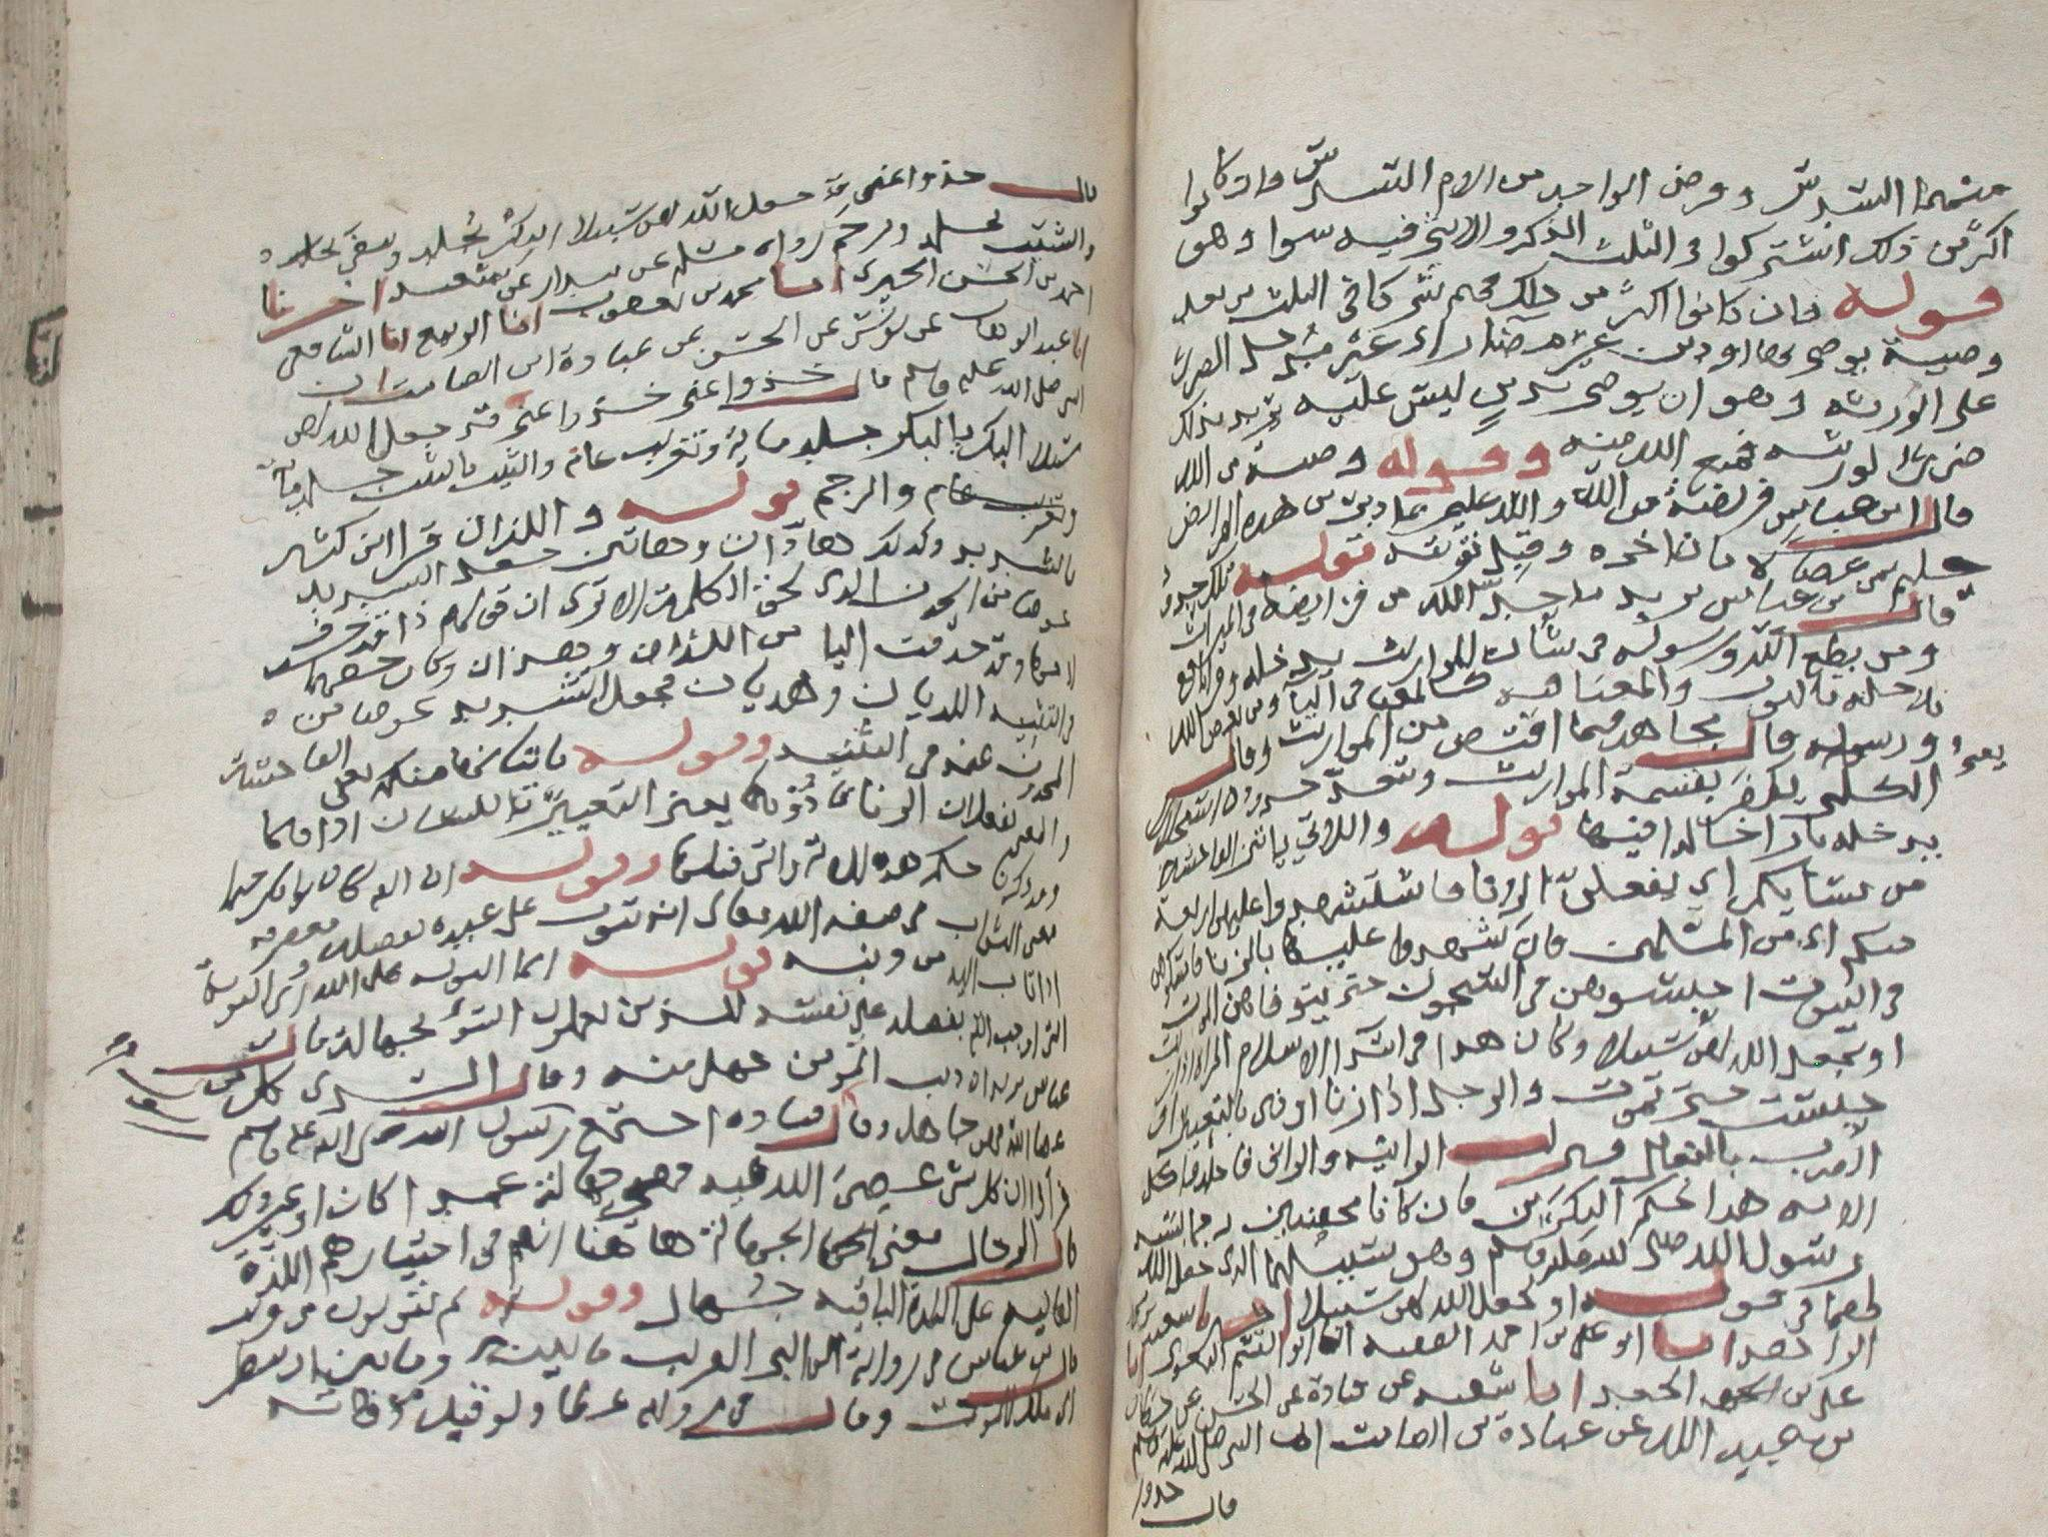 منهما السدس وفرض الواحد من الام السدس فان كانوا
اكثر من ذلك اشتركوا في الثلث الذكر والانثى فيه سوا وهو
قوله فان كانوا اكثر من ذلك فهم شركا في الثلث من بعد
وصية يوصى بها او دين غير مضار اي غير مدخل الضرر
على الورثة وهو ان يوصي بدين ليس عليه يريد بذلك
ضرر لورثته فمنع الله منه وقوله وصية من الله
قال ابن عباس فريضة من الله والله عليم بما دبر من هذه الفرايض
حليم عن من عصاه بان اخره وقبل توبته قوله تلك حدود
قال ابن عباس يريد ما حد الله من فرايضه في الميراث
ومن يطع الله ورسوله في شان المواريث يدخله وقرا نافع
ندخله بالنون والمعنى فيه كالمعنى في اليا ومن يعص الله
ورسوله قال مجاهد فيما اقتص من المواريث وقال
الكلبي يكفر بقسمة المواريث ويتعد حدوده استحلالا
يدخله نارا خالدا فيها قوله واللاتي ياتين الفاحشة
من نسايكم اي يفعلن الزنا فاستشهدوا عليهن اربعة
منكم اي من المسلمين فان شهدوا عليها بالزنا فامسكوهن
في البيوت احبسوهن في السجون حتى يتوفاهن الموت
او يجعل الله لهن سبيلا وكان هذا في ابتدا الاسلام المراة اذا زنت
حبست حتى تموت والرجل اذا زنا اوذي بالتعيير و
الضرب بالنعال فنزلت الزانية والزاني فاجلدوا كل
الاية هذا لحكم البكرين فان كانا محصنين رجما بسنة
رسول الله صلى الله عليه وسلم وهو سبيلهما الذي جعل الله
لهما في قوله او يجعل الله لهن سبيلا اخبرنا سعيد بن محمد
الزاهد انا ابو علي بن احمد الفقيه انا ابو القسم البغوي انا
علي بن الجعد انا شعبة عن قتادة عن الحسن عن حطان
بن عبيد الله عن عبادة بن الصامت ان النبي صلى الله عليه وسلم
قال خذوا
قال خذوا عني قد جعل الله لهن سبيلا البكر يجلد وينفى
والثيب يجلد ويرجم رواه مسلم عن بندار عن شعبة اخبرنا
احمد بن الحسن الحيري انا محمد بن يعقوب انا الربيع انا الشافعي
انا عبد الوهاب عن يونس عن الحسن عن عبادة ابن الصامت ان
النبي صلى الله عليه وسلم قال خذوا عني خذوا عني قد جعل الله لهن
سبيلا البكر بالبكر جلد ماية وتغريب عام والثيب بالثيب جلد ماية
وتغريب عام والرجم قوله واللذان قرا ابن كثير
بالتشديد وكذلك هاذان وهاتين جعل التشديد
عوضا من الحذف الذي لحق الكلمة الا ترى ان قولهم ذا قد حذف
لامها وقد حذفت اليا من اللذان وهذان وكان حقهما
في التثنية اللذيان وهذيان فجعل التشديد عوضا من
المحذوف عنه في التثنية وقوله ياتيانها منكم يعني الفاحشة
والمعنى يفعلان الزنا فاذوهما يعني التعيير باللسان
وقد ذكرنا حكم هذه الاية والتي قبلها وقوله ان الله كان توابا رحيما
معنى التواب في صفة الله تعالى انه يتوب على عبيده بفضله ومغفرته
اذا تاب اليه من ذنبه قوله انما التوبة على الله اي التوبة
التي اوجب الله بفضله على نفسه للذين يعملون السوء بجهالة قال
عباس يريد ان ذنب المومن جهل منه وقال السدي كل من
عصا الله فهو جاهل وقال قتادة اجتمع رسول الله صلى الله عليه وسلم
فراوا ان كل شي عصي الله فيه فهو جهالة عمدا كان او غير ذلك
قال الزجاج معنى الجهالة هاهنا انهم في اختيارهم اللذة
الفانية على اللذة الباقية جهال وقوله ثم يتوبون من قريب
قال ابن عباس في رواية القريب ما بينه وما بين ان ينظر
الى ملك الموت وقال في رواية عطا ولو قبل موته